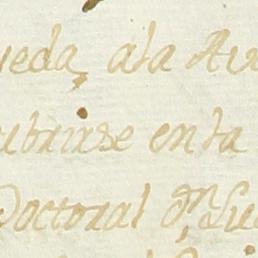 ueda, ala Au
ubrirse en la
Doctoral Dn Lu